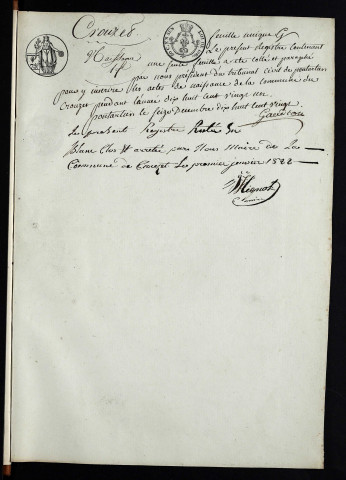 Crouzet
feuille unique G
Naissance Le présent registre contenant
une seule feuille a été coté et paraphé
par nous président du tribunal civil de pontarlier
pour y inscrire les actes de naissance de la commune du
Crouzet pendant l'année dix huit cent vingt un
pontarlier le seize Décembre dix huit cent vingt.
Le présent Registre Resté En
Blanc Clos et arrêté par Nous Maire de La
Commune de Crouzet Le premier janvier 1822
Mignot